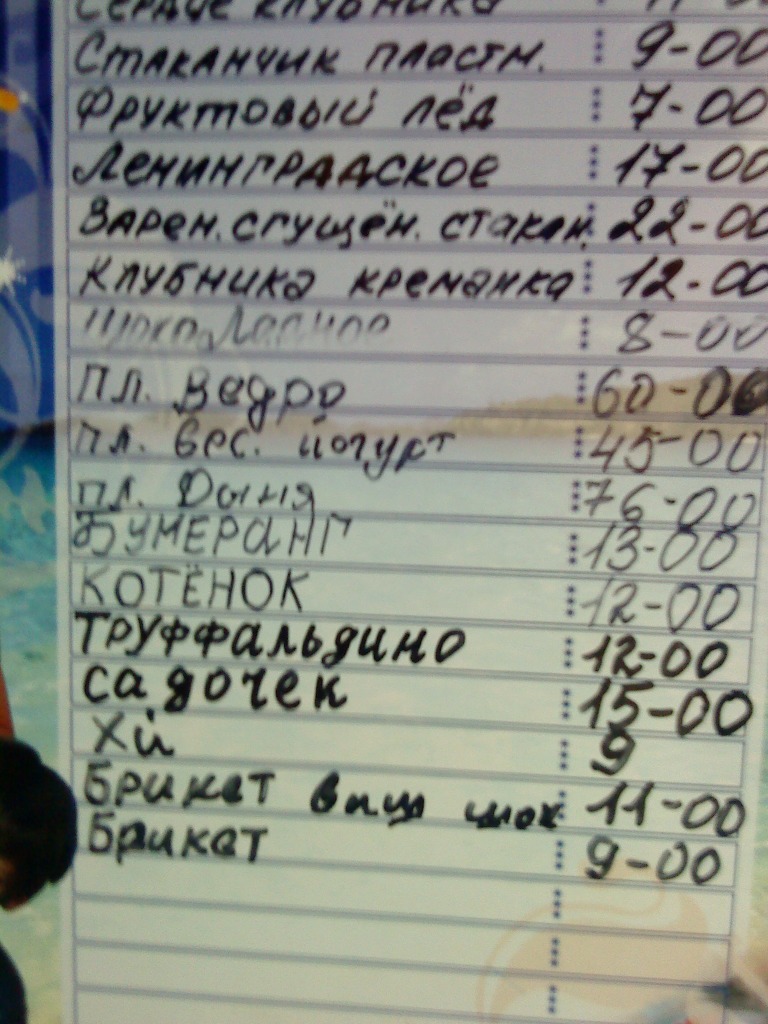 Сердце клубника 11-00
Стаканчик пластм. 9-00
Фруктовый лёд 7-00
Ленинградское 17-00
Варен.сгущён. стакан. 22-00
Клубника креманка 12-00
Шоколадное 8-00
пл. ведро 60-00
пл. вес. йогурт 45-00
пл. Дыня 76-00
БУМЕРАНГ 13-00
КОТЁНОК 12-00
Труффальдино 12-00
Садочек 15-00
Хи 9
Брикет виш шок 11-00
Брикет 9-00